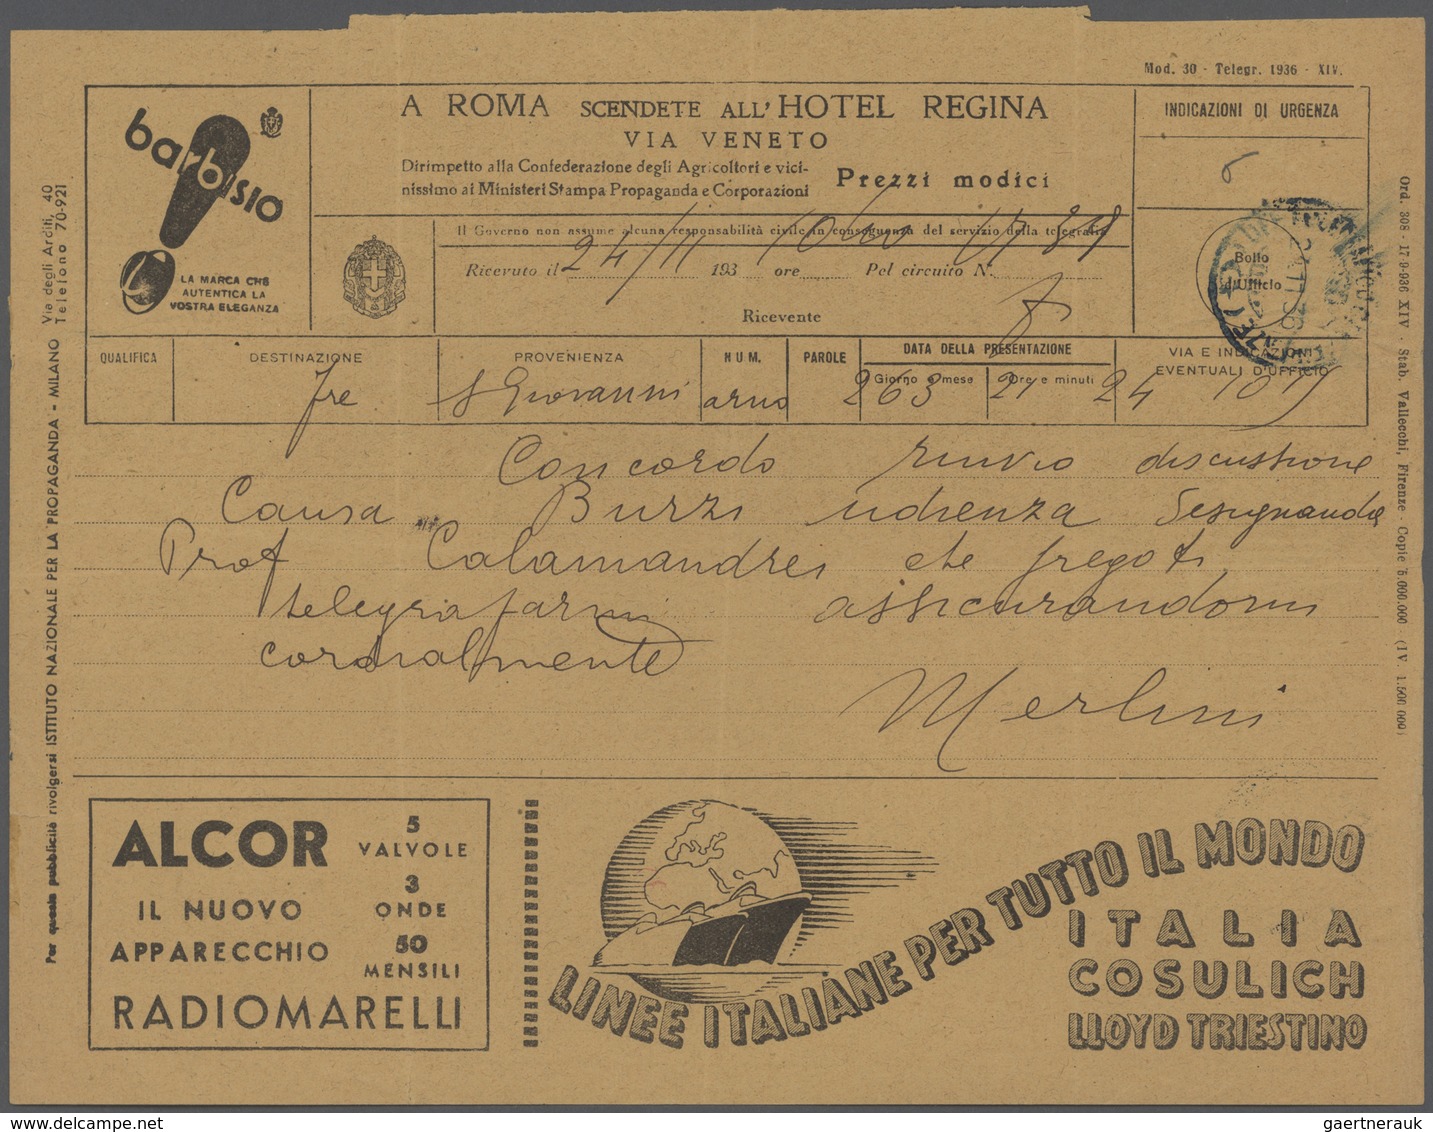 Mod. 30 - Telegr. 1936 - XIV.
barbisio
LA MARCA CHE
AUTENTICA LA
VOSTRA ELEGANZA
A ROMA SCENDETE ALL'HOTEL REGINA
VIA VENETO
Dirimpetto alla Confederazione degli Agricoltori e vici-
nissimo ai Ministeri Stampa Propaganda e Corporazioni
Prezzi modici
INDICAZIONI DI URGENZA
Il Governo non assume alcuna responsabilità civile in conseguenza del servizio della telegrafia
Ricevuto il 24/11 193 ore Pel circuito N.
Ricevente
Bollo
d'Ufficio
QUALIFICA DESTINAZIONE PROVENIENZA NUM. PAROLE DATA DELLA PRESENTAZIONE VIA E INDICAZIONI
Giorno e mese Ore e minuti EVENTUALI D'UFFICIO
Fre S Giovanni arno 263 21 24 1015
Concordo rinvio discussione
Causa Burzi udienza
Prof Calamandrei che pregoti
telegrafarmi assicurandomi
cordialmente
Merlini
Via degli Arditi, 40
Telefono 70-921
Per questa pubblicità rivolgersi ISTITUTO NAZIONALE PER LA PROPAGANDA - MILANO
Ord. 308 - 17-9-936 XIV - Stab. Vallecchi, Firenze - Copie 5.000.000 - (IV. 1.500 000)
ALCOR
IL NUOVO
APPARECCHIO
5
VALVOLE
3
ONDE
50
MENSILI
RADIOMARELLI
LINEE ITALIANE PER TUTTO IL MONDO
ITALIA
COSULICH
LLOYD TRIESTINO
gaertnerauk